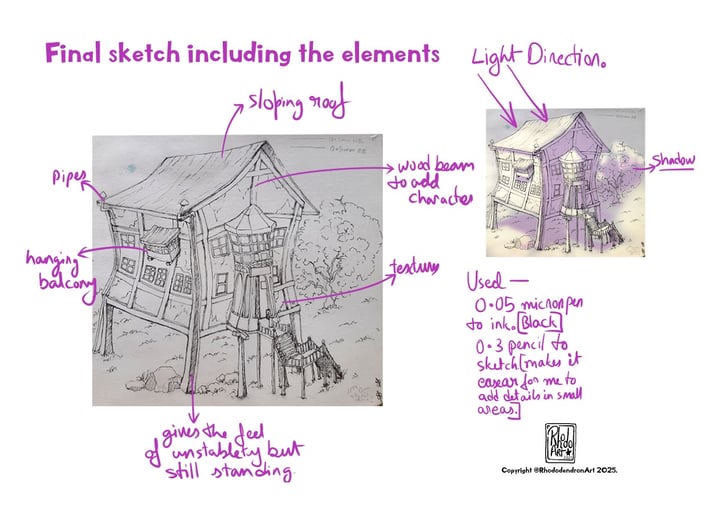 Final sketch including the elements
Light Direction.
sloping roof
pipes
wood beam
to add
character
shadow
hanging
balcony
texture
Used —
0.05 micron pen
to ink. [Black]
0.3 pencil to
sketch [makes it
easear for me to
add details in small
areas.]
gives the feel
of unstablety but
still standing
Rhodo
Art
Copyright @RhododendronArt 2025.